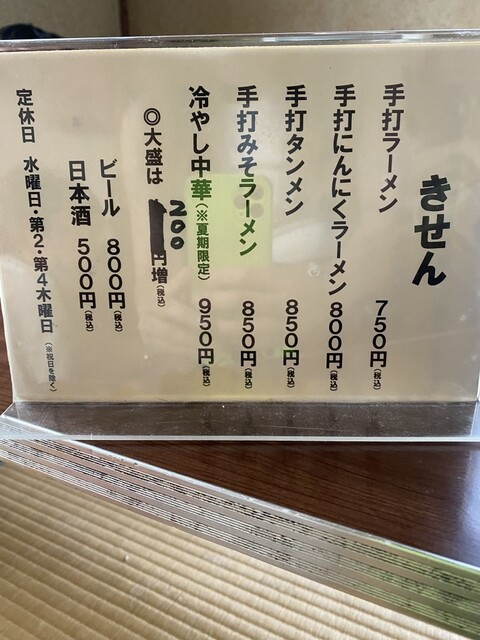 きせん
手打ラーメン 750円(税込)
手打にんにくラーメン 800円(税込)
手打タンメン 850円(税込)
手打みそラーメン 850円(税込)
冷やし中華(※夏期限定) 950円(税込)
◎大盛は 200円増(税込)
ビール 800円(税込)
日本酒 500円(税込)
定休日 水曜日・第2・第4木曜日(※祝日を除く)